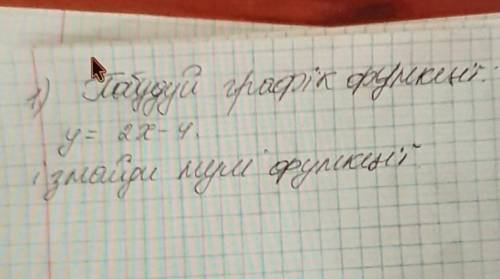 1) Побудуй графік функції.
y = 2x - 4.
і знайди нулі функції